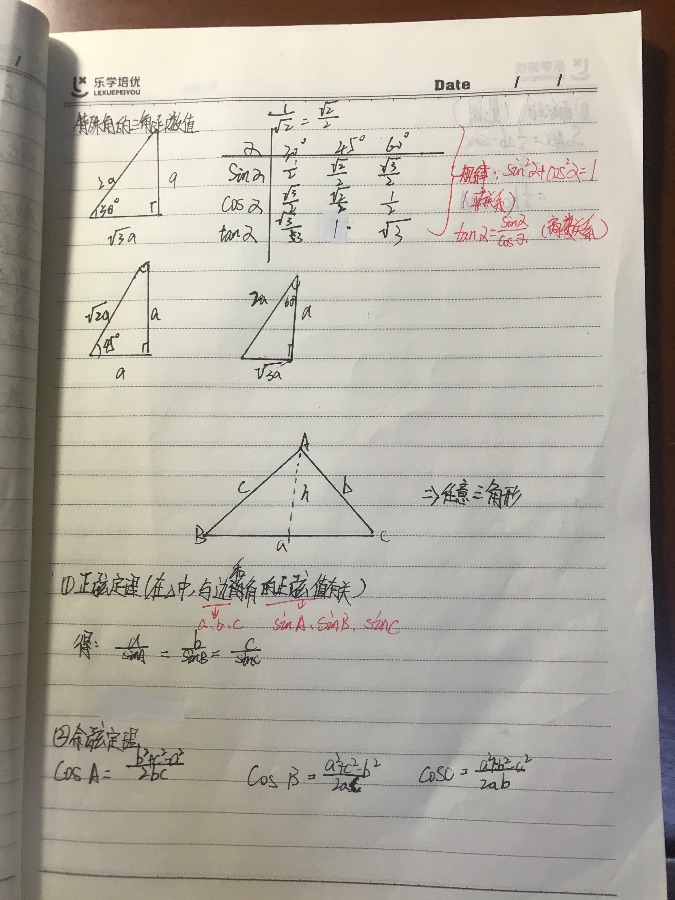 乐学培优
LEXUEPEIYOU
Date / /
特殊角的三角函数值
1/√2 = √2/2
2a a 30° √3a
α 30° 45° 60°
sinα 1/2 √2/2 √3/2
cosα √3/2 √2/2 1/2
tanα √3/3 1 √3
规律: sin²α+cos²α=1
(平方关系)
tanα=sinα/cosα (商数关系)
√2a a 45° a
2a 60° a √3a
A
c h b
⇒任意三角形
B a C
①正弦定理(在△中,与边和角的正弦值有关)
a、b、c sinA、sinB、sinC
得: a/sinA = b/sinB = c/sinC
②余弦定理
cosA = b²+c²-a²/2bc cosB = a²+c²-b²/2ac cosC = a²+b²-c²/2ab